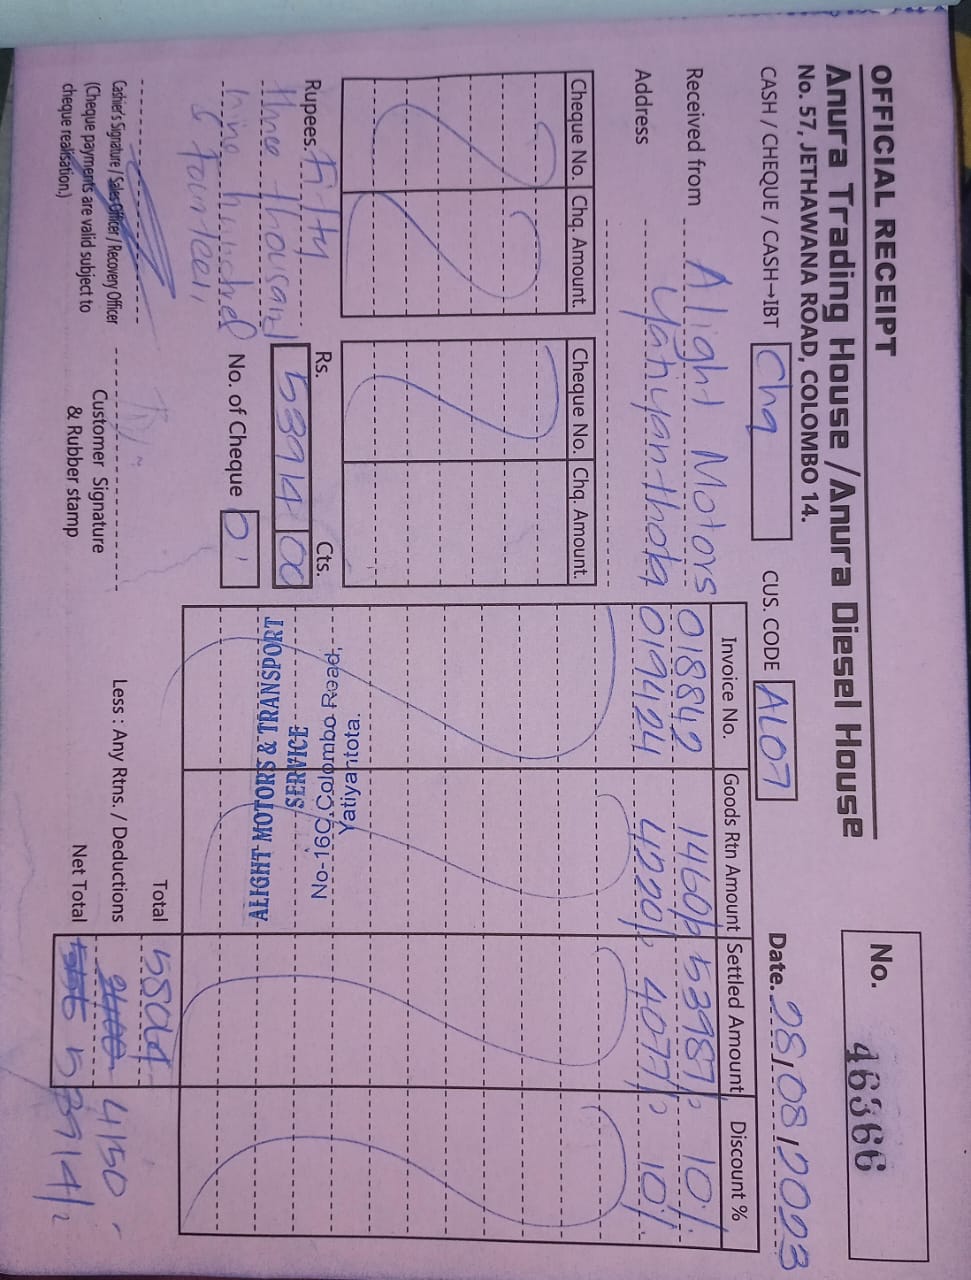 OFFICIAL RECEIPT
Anura Trading House /Anura Diesel House
No. 57, JETHAWANA ROAD, COLOMBO 14.
No. 46366
CASH / CHEQUE / CASH→IBT Chq
CUS. CODE AL07
Date. 28/08/2023
Received from Alight Motors
Address Yatiyanthota
Invoice No. Goods Rtn Amount Settled Amount Discount %
018842 1460/= 53987/= 10%
019424 4220/= 4077/= 10%
Cheque No. Chq. Amount. Cheque No. Chq. Amount.
Rupees. Fifty
three thousand
nine hundred
& fourteen,
Rs. Cts.
53914 00
No. of Cheque 01
No-160,Colombo Road,
Yatiyantota.
ALIGHT MOTORS & TRANSPORT
SERVICE
Total 58064
Less : Any Rtns. / Deductions 4150
Net Total 53914/=
Cashier's Signature / Sales Officer / Recovery Officer
(Cheque payments are valid subject to
cheque realisation.)
Customer Signature
& Rubber stamp